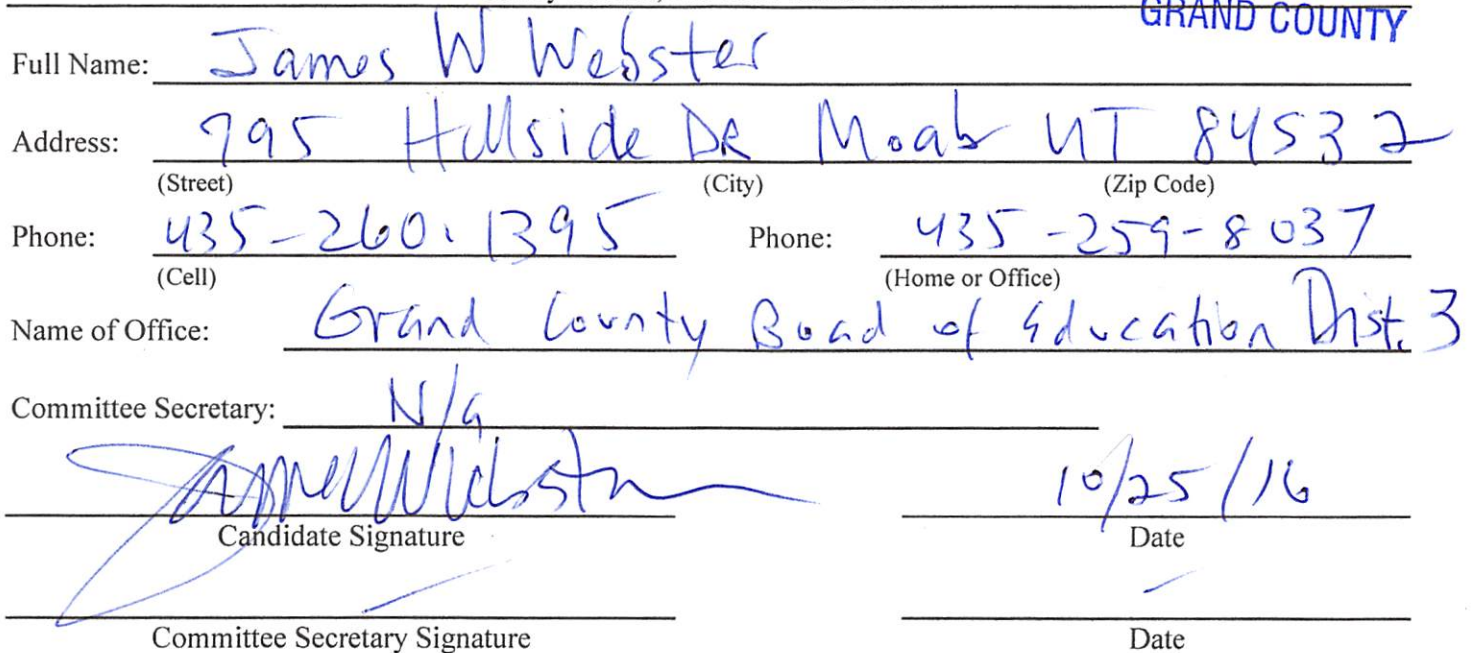 GRAND COUNTY
Full Name: James W Webster
Address: 795 Hillside DR Moab UT 84532
(Street) (City) (Zip Code)
Phone: 435-260-1395 Phone: 435-259-8037
(Cell) (Home or Office)
Name of Office: Grand County Boad of Education Dist. 3
Committee Secretary: N/a
James W Webster 10/25/16
Candidate Signature Date
Committee Secretary Signature Date